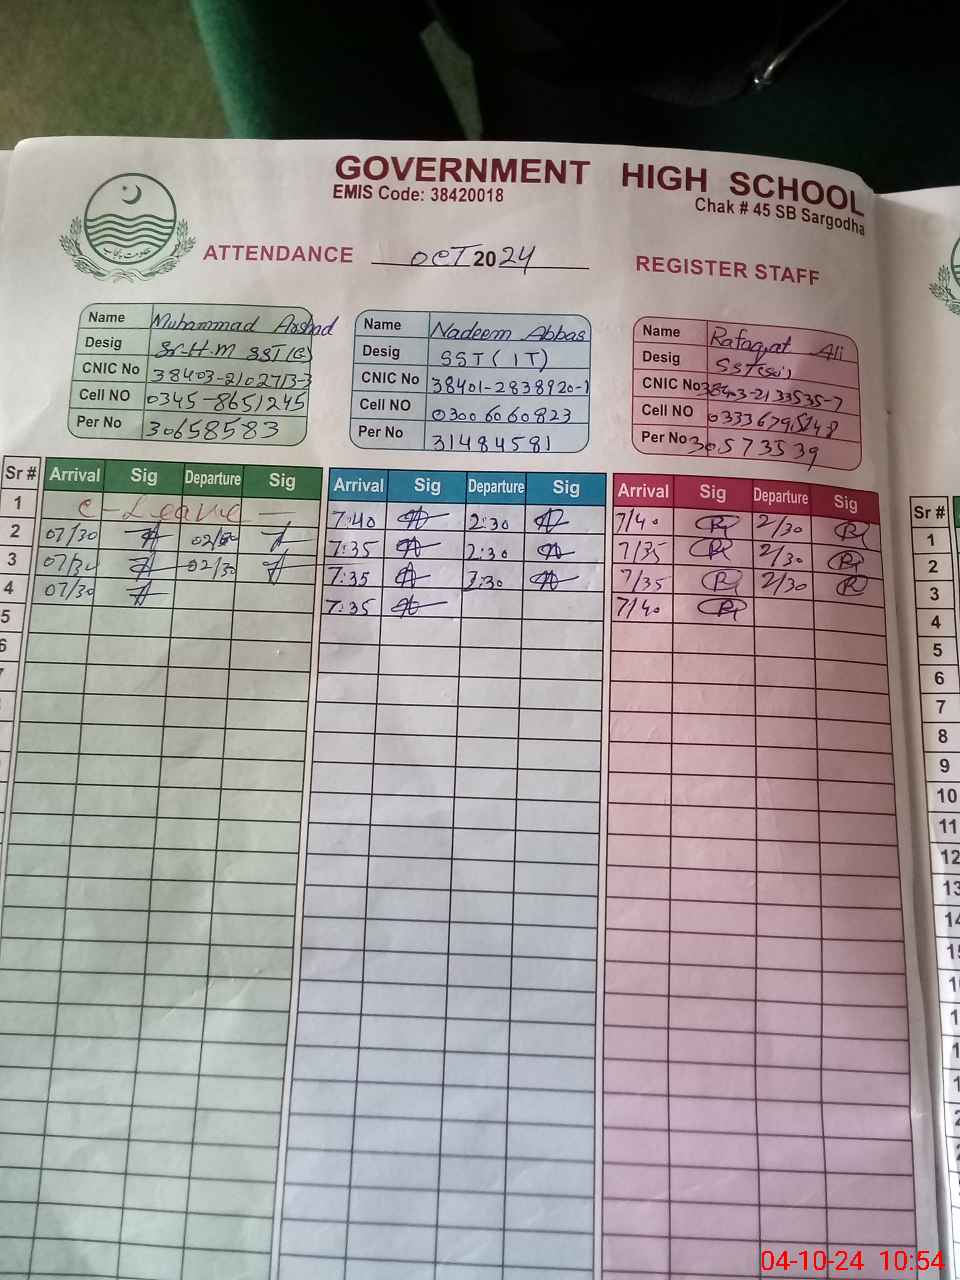 GOVERNMENT HIGH SCHOOL
EMIS Code: 38420018
Chak # 45 SB Sargodha
حکومت پنجاب
ATTENDANCE OCT 2024 REGISTER STAFF
Name Muhammad Arshad
Desig Sr-H.M SST(G)
CNIC No 38403-2102713-3
Cell NO 0345-8651245
Per No 30658583
Name Nadeem Abbas
Desig SST (IT)
CNIC No 38401-2838920-1
Cell NO 03006060823
Per No 31484581
Name Rafaqat Ali
Desig SST(Sci)
CNIC No 38403-2133535-7
Cell NO
Per No 30573539
Sr # Arrival Sig Departure Sig Arrival Sig Departure Sig Arrival Sig Departure Sig
1 C-Leave — 7:40 2:30 7/40 2/30
2 07/30 7:35 2:30 7/35 2/30
3 07/30 02/30 7:35 2:30 7/35 2/30
4 07/30 7:35 7/40
5
6
7
Sr #
1
2
3
4
5
6
7
8
9
10
11
12
13
14
04-10-24 10:54